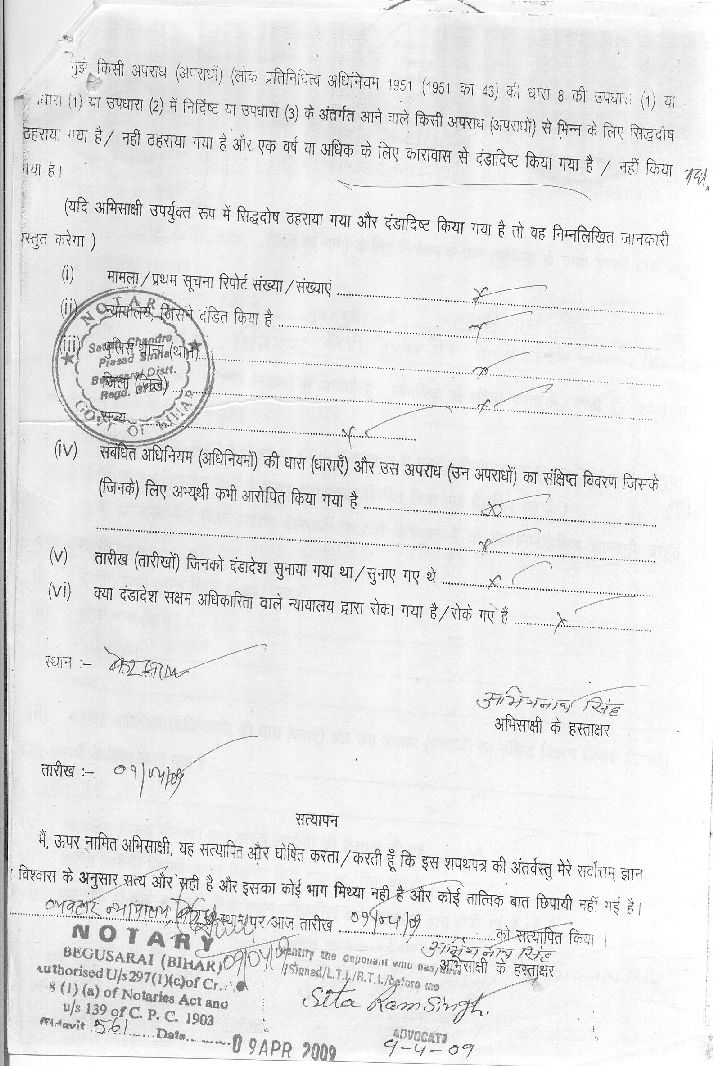 मुझे किसी अपराध (अपराधों) (लोक प्रतिनिधित्व अधिनियम 1951 (1951 का 43) की धारा 8 की उपधारा (1) या
धारा (1) या उपधारा (2) में निर्दिष्ट या उपधारा (3) के अंतर्गत आने वाले किसी अपराध (अपराधों) से भिन्न के लिए सिद्धदोष
ठहराया गया है / नही ठहराया गया है और एक वर्ष या अधिक के लिए कारावास से दंडादिष्ट किया गया है / नहीं किया
गया है।
(यदि अभिसाक्षी उपर्युक्त रूप में सिद्धदोष ठहराया गया और दंडादिष्ट किया गया है तो वह निम्नलिखित जानकारी
प्रस्तुत करेगा )
(i) मामला / प्रथम सूचना रिपोर्ट संख्या / संख्याएं x
(ii) न्यायालय, जिसने दंडित किया है x
(iii) पुलिस थाना (थाने) x
जिला (जिले) x
राज्य x
NOTARY
Satish Chandra
Prasad Sinha
Begusarai Distt.
Regd.
GOVT OF BIHAR
(iv) संबंधित अधिनियम (अधिनियमों) की धारा (धाराएँ) और उस अपराध (उन अपराधों) का संक्षिप्त विवरण जिसके
(जिनके) लिए अभ्यर्थी कभी आरोपित किया गया है x
x
(v) तारीख (तारीखों) जिनको दंडादेश सुनाया गया था / सुनाए गए थे x
(vi) क्या दंडादेश सक्षम अधिकारिता वाले न्यायालय द्वारा रोका गया है / रोके गए है x
स्थान :- बेगूसराय
सिंह
अभिसाक्षी के हस्ताक्षर
तारीख :- 09/04/09
सत्यापन
मैं, ऊपर नामित अभिसाक्षी, यह सत्यापित और घोषित करता / करती हूँ कि इस शपथपत्र की अंतर्वस्तु मेरे सर्वोत्तम ज्ञान
विश्वास के अनुसार सत्य और सही है और इसका कोई भाग मिथ्या नही है और कोई तात्विक बात छिपायी नहीं गई है।
व्यवहार न्यायालय पर आज तारीख 09/04/09 को सत्यापित किया ।
सिंह
अभिसाक्षी के हस्ताक्षर
NOTARY
BEGUSARAI (BIHAR) 09/04/09
Authorised U/s 297(1)(c) of Cr.
8 (1) (a) of Notaries Act and
u/s 139 of C. P. C. 1903
Affidavit 561 Date
09 APR 2009
identify the deponent who has
/Signed/L.T.I./R.T.I./before me
Sita Ram Singh.
ADVOCATE
9-4-09